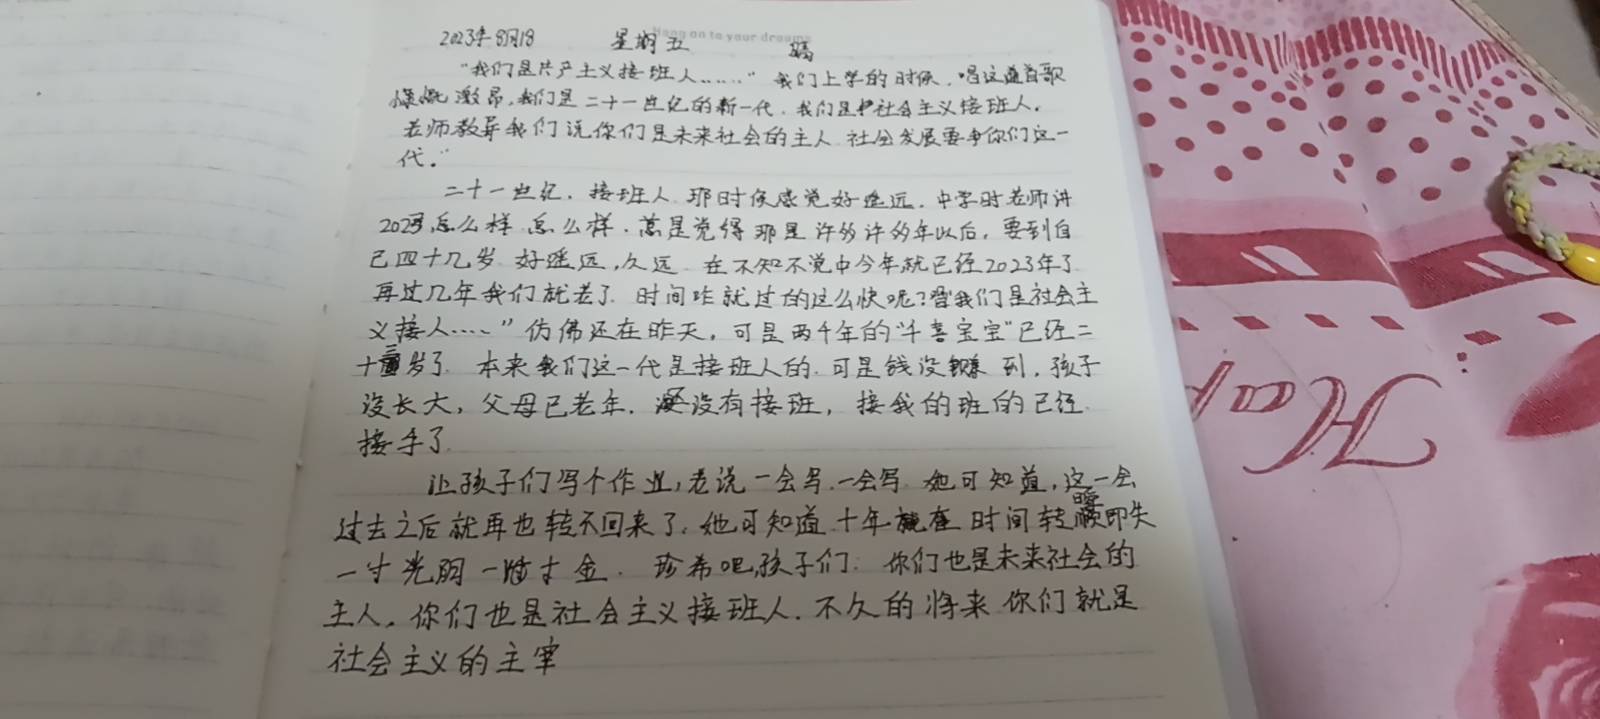 Hang on to your dreams
2023年8月18 星期五 晴
"我们是共产主义接班人……" 我们上学的时候,唱这首歌
慷慨激昂,我们是二十一世纪的新一代,我们是社会主义接班人.
老师教导我们说你们是未来社会的主人 社会发展要争你们这一
代."
二十一世纪,接班人 那时候感觉好遥远.中学时老师讲
2023怎么样怎么样.总是觉得那是许多许多年以后,要到自
己四十几岁 好遥远,久远 在不知不觉中今年就已经2023年了
再过几年我们就老了 时间咋就过的这么快呢?"我们是社会主
义接人……"仿佛还在昨天,可是两千年的"千喜宝宝"已经二
十三岁了 本来我们这一代是接班人的.可是钱没赚到,孩子
没长大,父母已老年.还没有接班,接我的班的已经
接手了
让孩子们写个作业,老说一会写.一会写 她可知道,这一会
过去之后就再也转不回来了,她可知道十年 时间转瞬即失
一寸光阴一寸金.珍希吧,孩子们.你们也是未来社会的
主人.你们也是社会主义接班人.不久的将来你们就是
社会主义的主宰
Hap